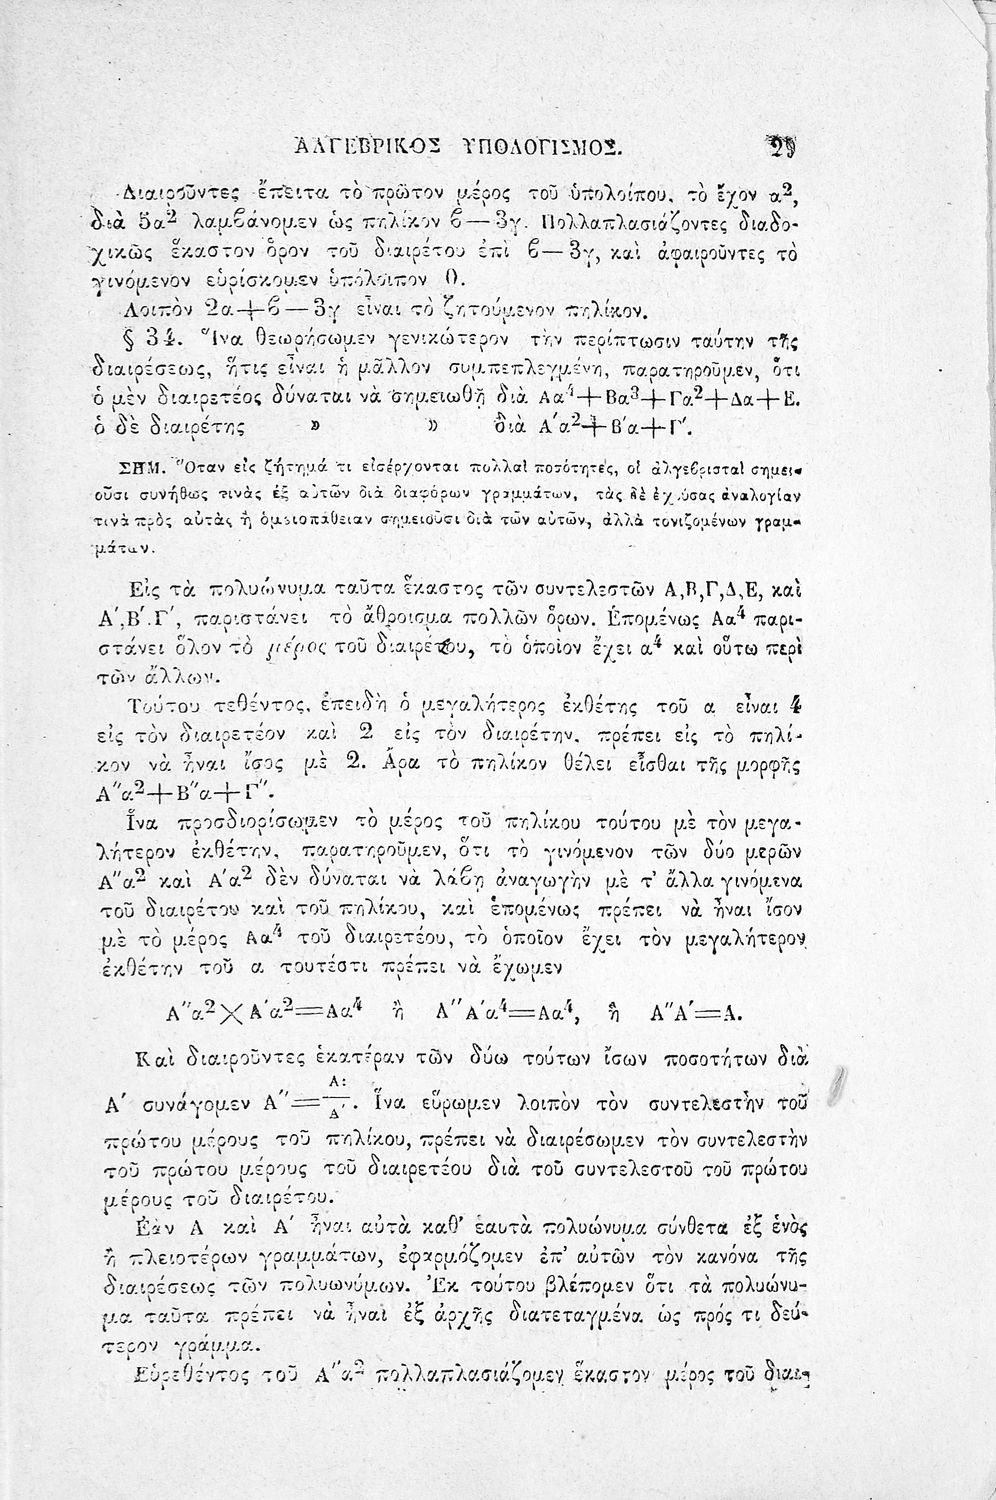 ΑΛΓΕΒΡΙΚΟΣ ΥΠΟΛΟΓΙΣΜΟΣ. 29
Διαιροῦντες ἔπειτα τὸ πρῶτον μέρος τοῦ ὑπολοίπου, τὸ ἔχον α²,
διὰ 5α² λαμβάνομεν ὡς πηλίκον β—3γ. Πολλαπλασιάζοντες διαδο-
χικῶς ἕκαστον ὅρον τοῦ διαιρέτου ἐπὶ β—3γ, καὶ ἀφαιροῦντες τὸ
γινόμενον εὑρίσκομεν ὑπόλοιπον 0.
Λοιπὸν 2α+β—3γ εἶναι τὸ ζητούμενον πηλίκον.
§ 34. Ἵνα θεωρήσωμεν γενικώτερον τὴν περίπτωσιν ταύτην τῆς
διαιρέσεως, ἥτις εἶναι ἡ μᾶλλον συμπεπλεγμένη, παρατηροῦμεν, ὅτι
ὁ μὲν διαιρετέος δύναται νὰ σημειωθῇ διὰ Αα⁴+Βα³+Γα²+Δα+Ε.
ὁ δὲ διαιρέτης » » διὰ Α΄α²+Β΄α+Γ΄.
ΣΗΜ. Ὅταν εἰς ζήτημά τι εἰσέρχονται πολλαὶ ποσότητες, οἱ ἀλγεβρισταὶ σημει-
οῦσι συνήθως τινὰς ἐξ αὐτῶν διὰ διαφόρων γραμμάτων, τὰς δὲ ἐχούσας ἀναλογίαν
τινὰ πρὸς αὐτὰς ἢ ὁμοιοπάθειαν σημειοῦσι διὰ τῶν αὐτῶν, ἀλλὰ τονιζομένων γραμ-
μάτων.
Εἰς τὰ πολυώνυμα ταῦτα ἕκαστος τῶν συντελεστῶν Α,Β,Γ,Δ,Ε, καὶ
Α΄,Β΄.Γ΄, παριστάνει τὸ ἄθροισμα πολλῶν ὅρων. Ἑπομένως Αα⁴ παρι-
στάνει ὅλον τὸ μέρος τοῦ διαιρέτου, τὸ ὁποῖον ἔχει α⁴ καὶ οὕτω περὶ
τῶν ἄλλων.
Τούτου τεθέντος, ἐπειδὴ ὁ μεγαλήτερος ἐκθέτης τοῦ α εἶναι 4
εἰς τὸν διαιρετέον καὶ 2 εἰς τὸν διαιρέτην, πρέπει εἰς τὸ πηλί-
κον νὰ ἦναι ἴσος μὲ 2. Ἄρα τὸ πηλίκον θέλει εἶσθαι τῆς μορφῆς
Α΄΄α²+Β΄΄α+Γ΄΄.
Ἵνα προσδιορίσωμεν τὸ μέρος τοῦ πηλίκου τούτου μὲ τὸν μεγα-
λήτερον ἐκθέτην, παρατηροῦμεν, ὅτι τὸ γινόμενον τῶν δύο μερῶν
Α΄΄α² καὶ Α΄α² δὲν δύναται νὰ λάβῃ ἀναγωγὴν μὲ τ' ἄλλα γινόμενα
τοῦ διαιρέτου καὶ τοῦ πηλίκου, καὶ ἑπομένως πρέπει νὰ ἦναι ἴσον
μὲ τὸ μέρος Αα⁴ τοῦ διαιρετέου, τὸ ὁποῖον ἔχει τὸν μεγαλήτερον
ἐκθέτην τοῦ α τουτέστι πρέπει νὰ ἔχωμεν
Α΄΄α²×Α΄α²=Αα⁴ ἢ Α΄΄Α΄α⁴=Αα⁴, ἢ Α΄΄Α΄=Α.
Καὶ διαιροῦντες ἑκατέραν τῶν δύω τούτων ἴσων ποσοτήτων διὰ
Α΄ συνάγομεν Α΄΄=Α/Α΄. Ἵνα εὕρωμεν λοιπὸν τὸν συντελεστὴν τοῦ
πρώτου μέρους τοῦ πηλίκου, πρέπει νὰ διαιρέσωμεν τὸν συντελεστὴν
τοῦ πρώτου μέρους τοῦ διαιρετέου διὰ τοῦ συντελεστοῦ τοῦ πρώτου
μέρους τοῦ διαιρέτου.
Ἐὰν Α καὶ Α΄ ἦναι αὐτὰ καθ' ἑαυτὰ πολυώνυμα σύνθετα ἐξ ἑνὸς
ἢ πλειοτέρων γραμμάτων, ἐφαρμόζομεν ἐπ' αὐτῶν τὸν κανόνα τῆς
διαιρέσεως τῶν πολυωνύμων. Ἐκ τούτου βλέπομεν ὅτι τὰ πολυώνυ-
μα ταῦτα πρέπει νὰ ἦναι ἐξ ἀρχῆς διατεταγμένα ὡς πρός τι δεύ-
τερον γράμμα.
Εὑρεθέντος τοῦ Α΄΄α² πολλαπλασιάζομεν ἕκαστον μέρος τοῦ διαι-